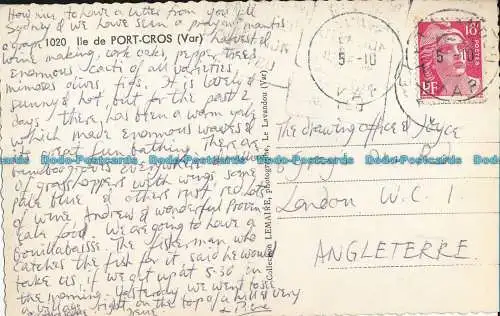 How nice to have a letter from you all
Sydney & we have seen a praying mantis
a grape harvest &
1020 Ile de PORT-CROS (Var)
wine making, cork oaks, pepper trees
enormous cacti of all varieties,
mimosas olives figs. It is lovely &
sunny & hot but for the past 2
days there has been a warm gale
which made enormous waves &
great fun bathing. There are
of grasshoppers with wings some
pale blue & others rust red lots
of wine, Andrew & wonderful Proven
cale food. We are going to have a
Bouillabaisse. The fisherman who
catches the fish for it, said he would
take us if we get up at 5-30 in
the morning. Yesterday we went to see
a village right on the top of a hill & very
Collection LEMAIRE, photographe, Le Lavandou (Var)
5-10
VAR
18F
POSTES
RF
5-10
VAR
The drawing office
London W.C.1.
ANGLETERRE
Dodo-Postcards Dodo-Postcards Dodo-Postcards Dodo-Postcards
Dodo-Postcards Dodo-Postcards Dodo-Postcards Dodo-Postcards